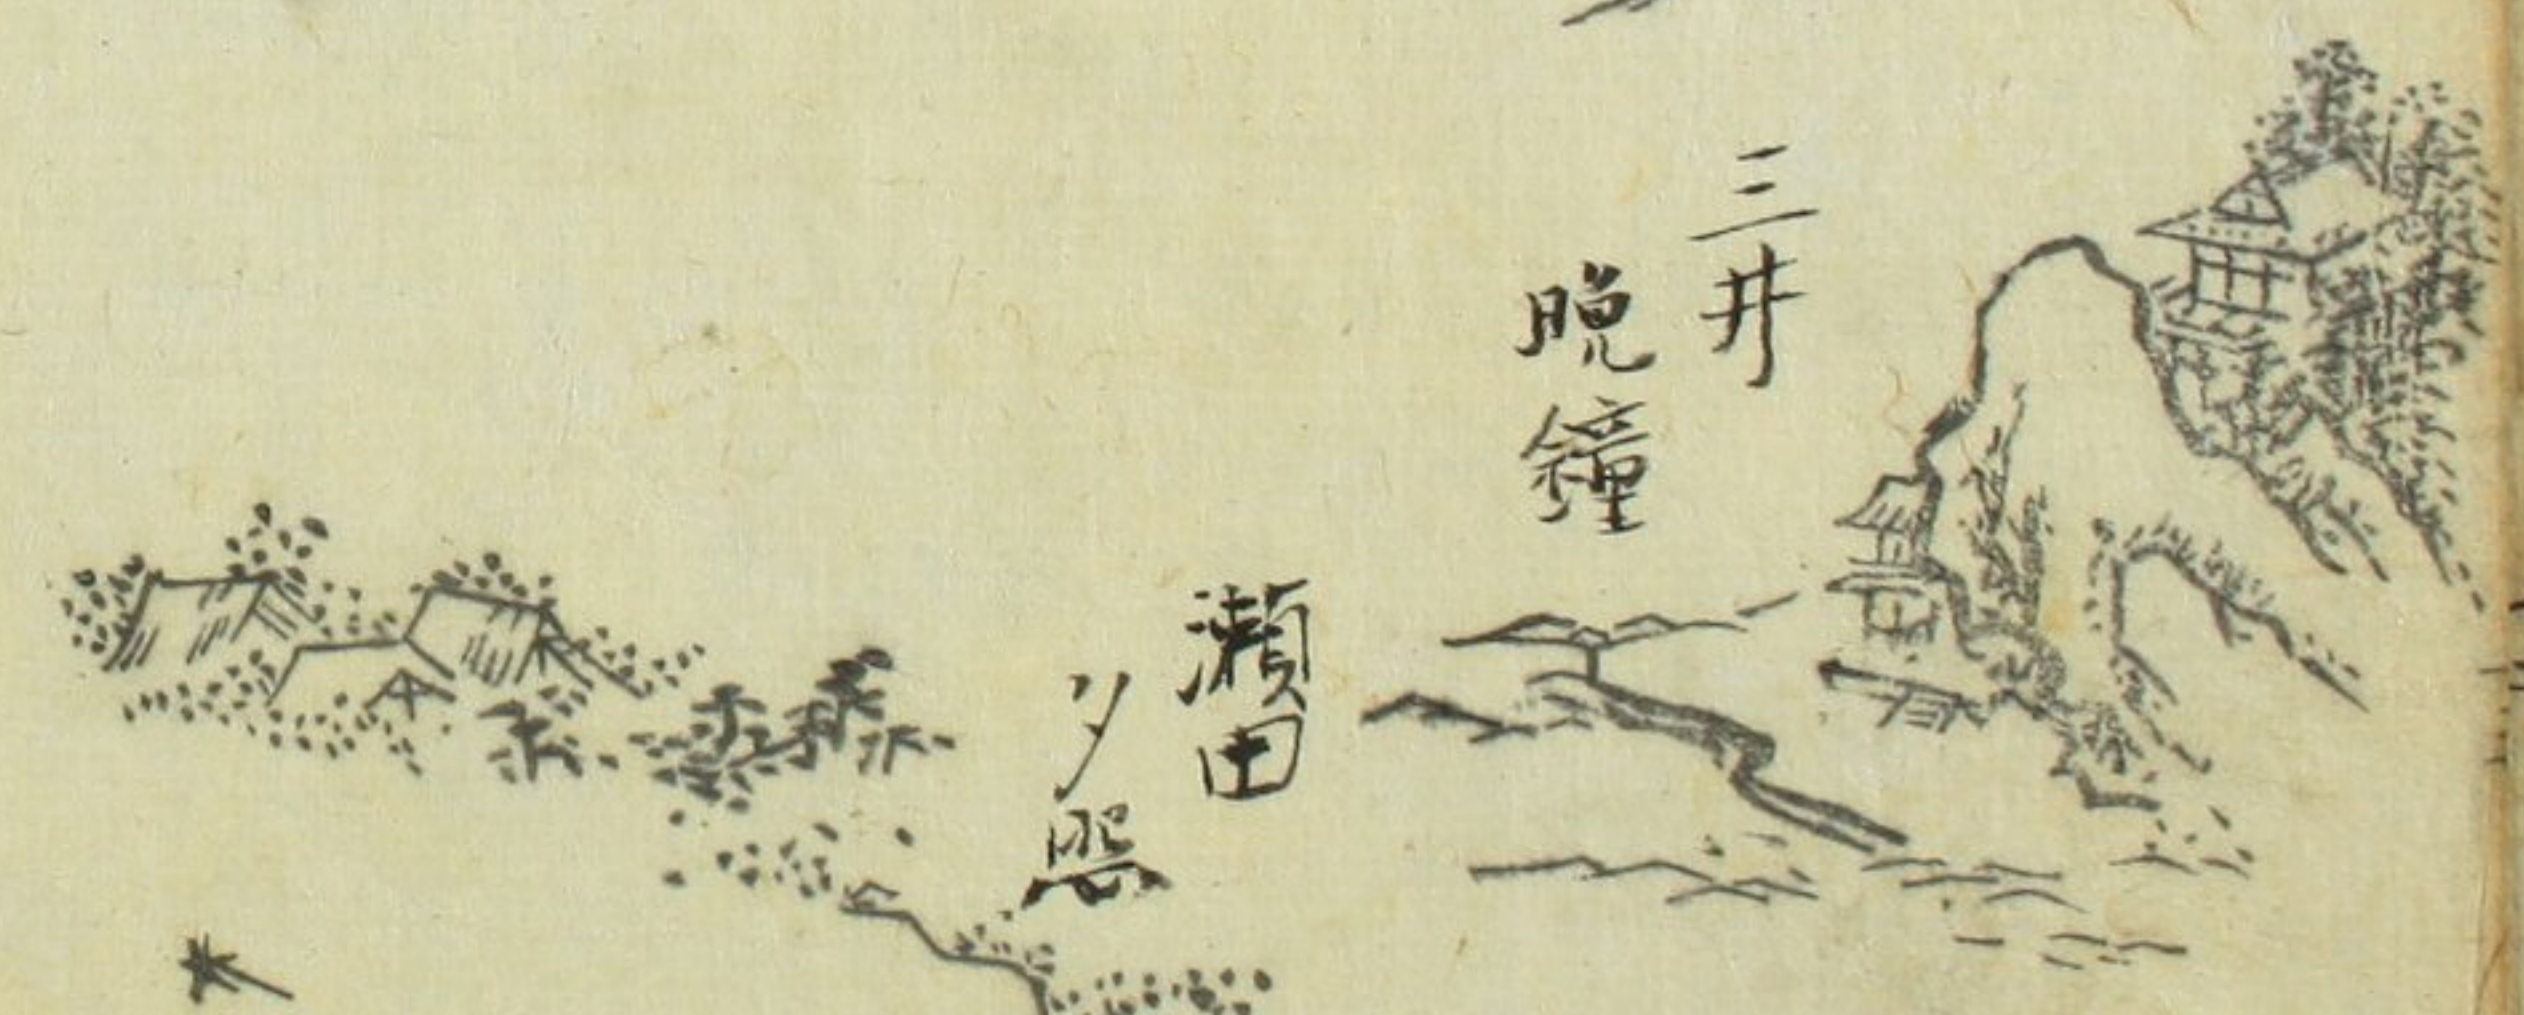 三井
晩鐘
瀬田
夕照